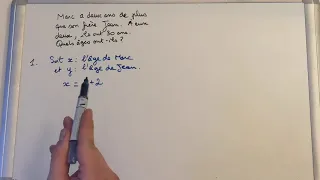 Marc a deux ans de plus
que son frère Jean. À eux
deux, ils ont 30 ans.
Quels âges ont-ils ?
1. Soit x : l'âge de Marc
et y : l'âge de Jean.
x = +2